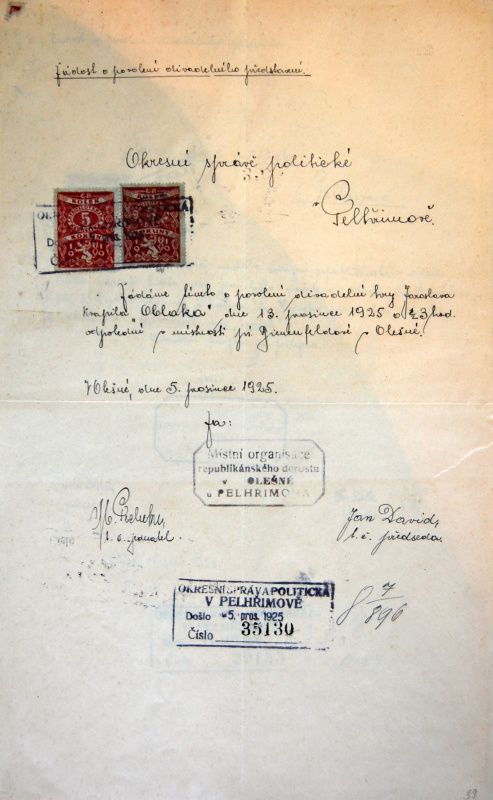 Žádost o povolení divadelního představení.
Okresní správě politické
v
Pelhřimově.
5
Žádáme tímto o povolení divadelní hry Jaroslava
Kvapila "Oblaka" dne 13. prosince 1925 o ½3 hod.
odpolední v místnosti při v Olešné.
V Olešné, dne 5. prosince 1925.
Za:
Místní organisace
republikánského dorostu
v OLEŠNÉ
u PELHŘIMOVA
t. č. jednatel.
Jan David,
t. č. předseda.
OKRESNÍ SPRÁVA POLITICKÁ
V PELHŘIMOVĚ
Došlo -5. pros. 1925
Číslo 35130
8 7/896